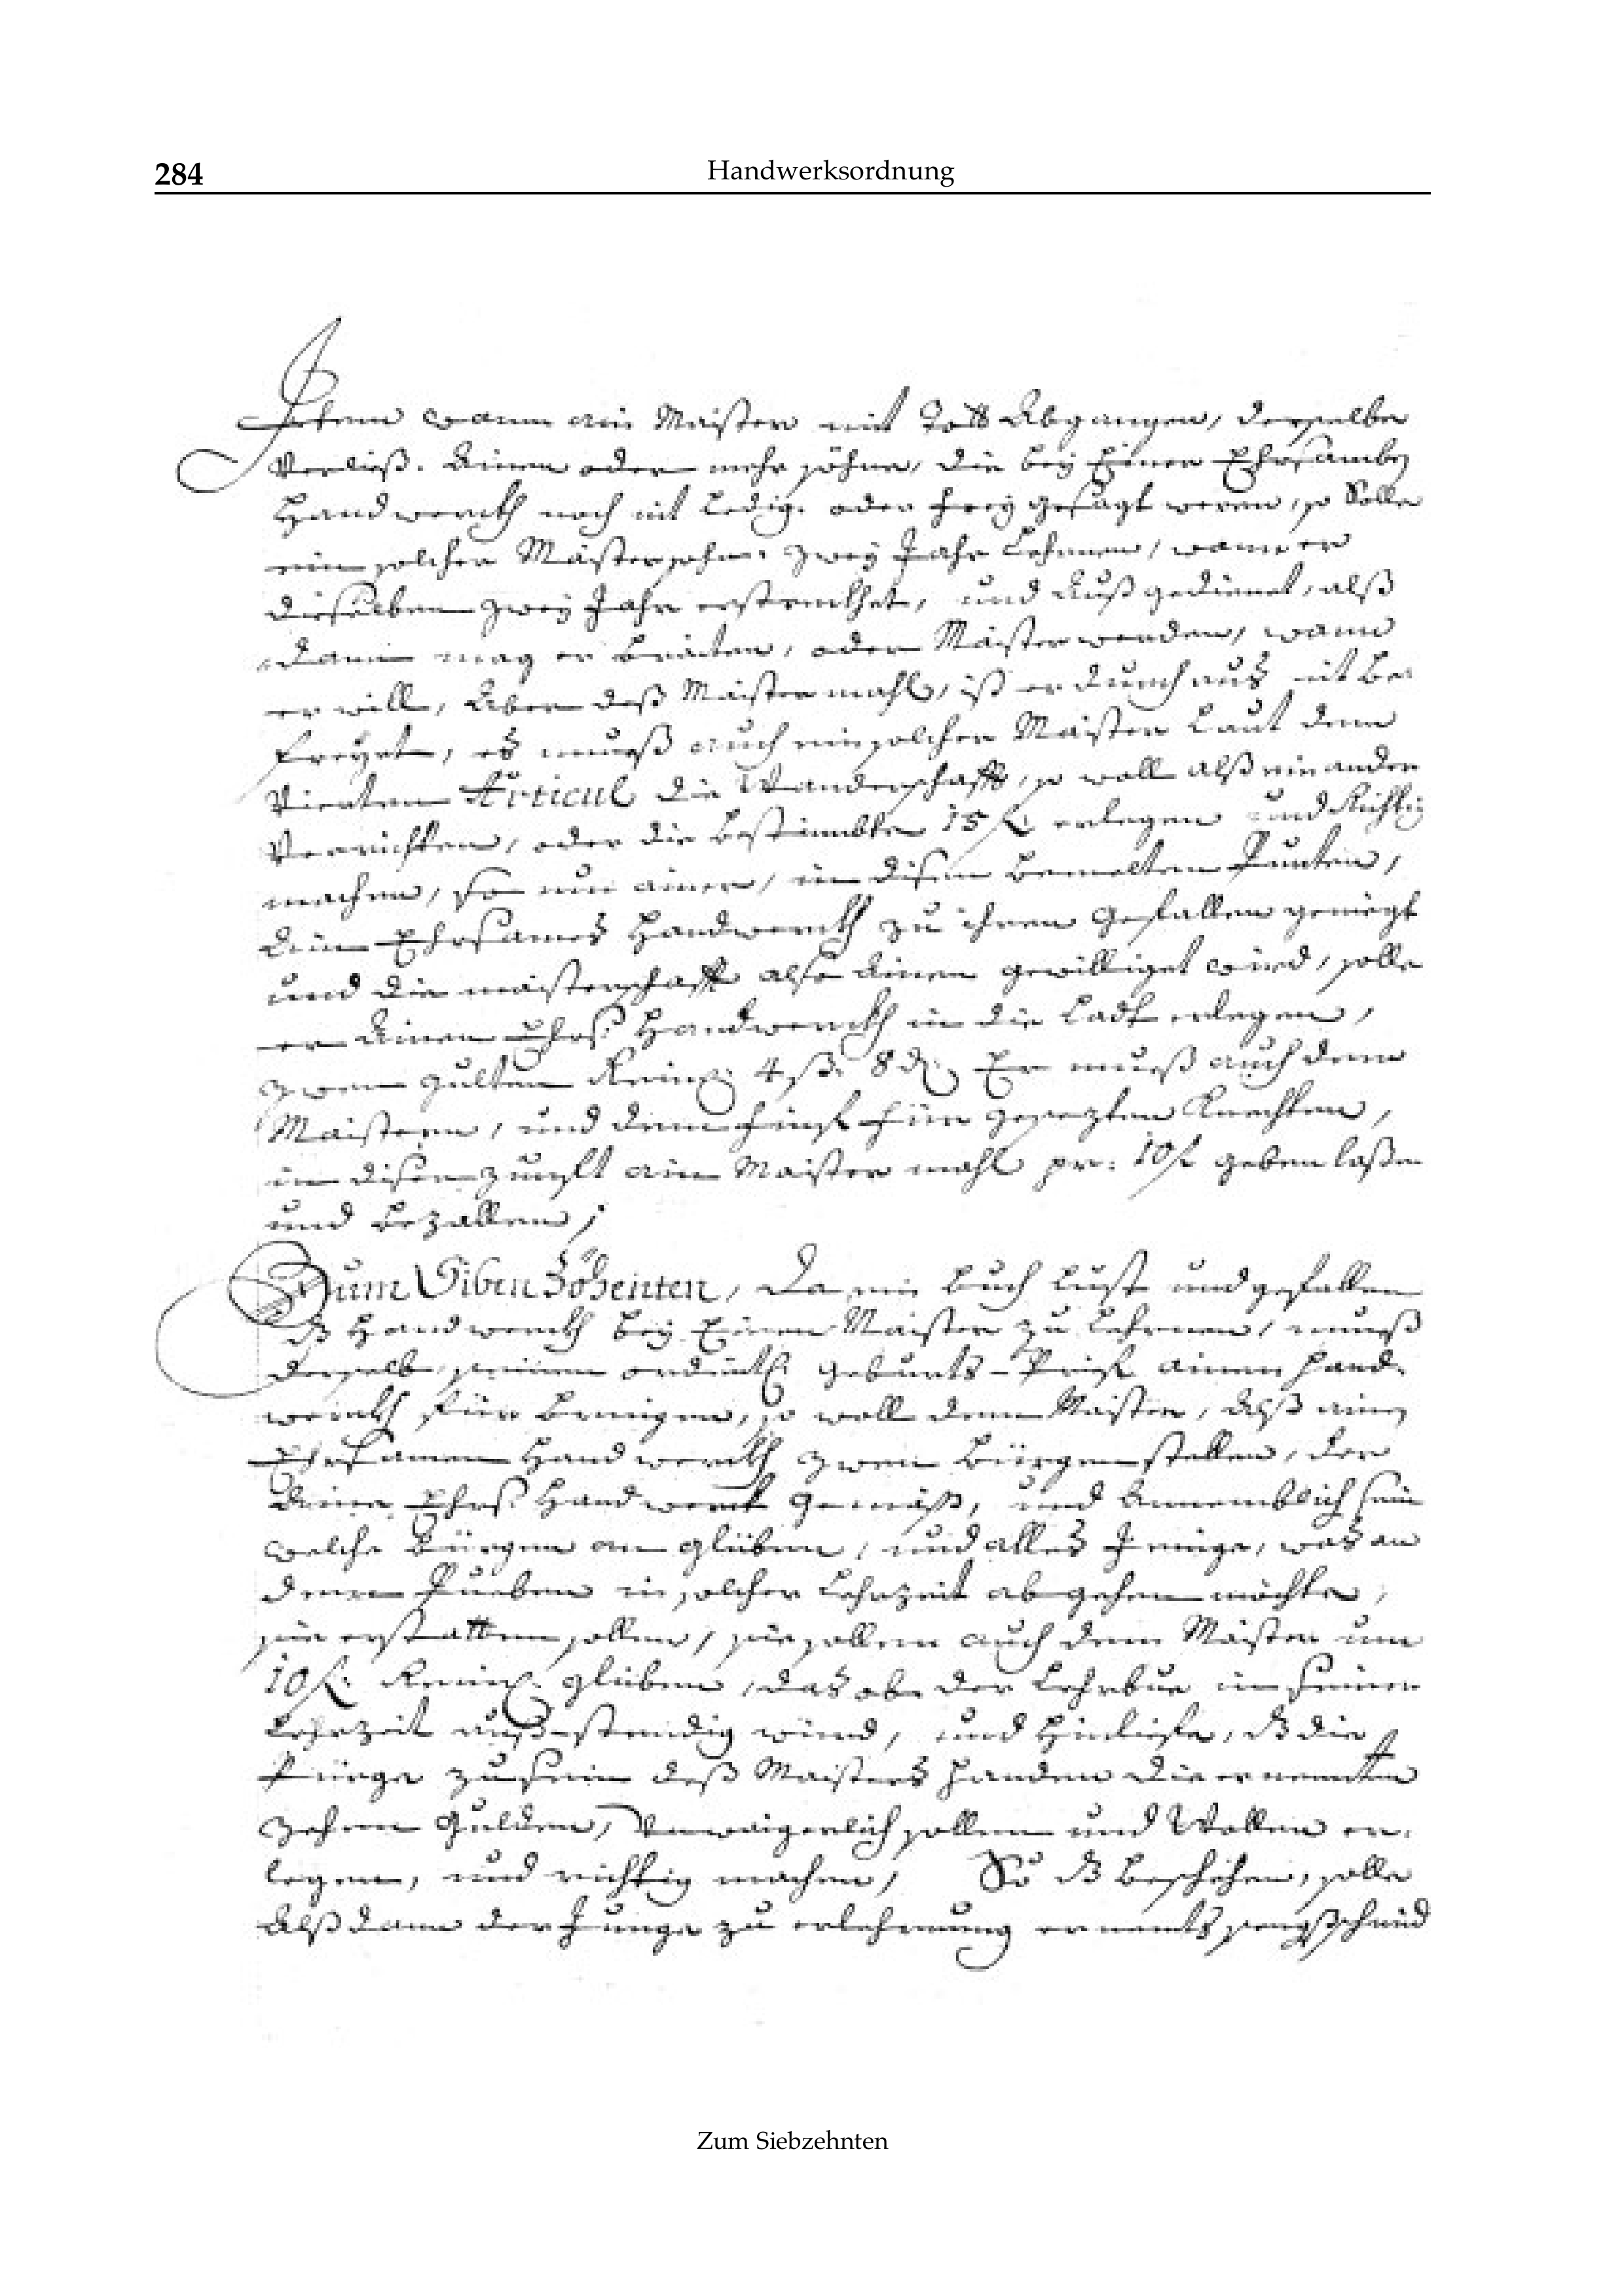 284
Handwerksordnung
Item wann ain Maister mit Todt Abgangen, derselbe
Verließ. Ainen oder mehr söhne, die bey Einen Ehrsamben
Handwerckh noch nit Ledig. oder frey gesagt weren, so Solle
ein solcher Maistersohn. zwey Jahr Lehrnen, wann er
dieselben zwey Jahr erstreckhet, und Auß gedienet, alß
dann mag er oder Maister werden, wann
er will, Aber deß Maister mahls, ist er durch aus nit be
freyet, es mueß auch ein solcher Maister Laut dem
Vierten Articul die Wanderschafft, so woll alß ein ander
Verrichten, oder die bestimbten 15 f. erlegen und Richtig
machen, So nun ainer, in disen bemelten Puncten,
Ein Ehrsames Handwerckh zu ihren gefallen
und die maisterschafft also Ainen gewilliget wird, solle
er Ainen Ehrs. Handwerckh in die Ladt erlegen,
zwen gulten Reinis. 4 ß. 8 d. Er mueß auch dem
Maistern, und dem für gesezten Knechten,
in diser zunfft ain Maister mahl pr: 10 f geben laßen
und bezallen;
Zum Siben Zöhenten, Da ein Lust und gefallen
Handwerckh bey Einen Maister zu Lehrnen, mueß
derselb seinen ordentl. geburts-Brief ainen Hand-
werckh für so woll dem Maister, alß ainen
Ehrsamen Handwerckh zwen Bürgen stellen, der
Einen Ehrs. Handwerck gemäß, und Annemblich sein
welche Bürgen an glüben, und alles Jenige, was an
dem Pueben in solcher Lehrzeit ab gehen möchte,
sie erstatten sollen, sie sollen auch dem Maister um
10 f. Reinis. glüben, das ob der Lehrbue in seiner
Lehrzeit auß stendig wurd, und hinlieffe, die
Pürge zu sein deß Maisters Handen die ernennten
zehen Gulden, Unwaigerlich sollen und Wollen er-
legen, und richtig machen, So beschehen, solle
Alß dann der Junge zu erlehrnung
Zum Siebzehnten